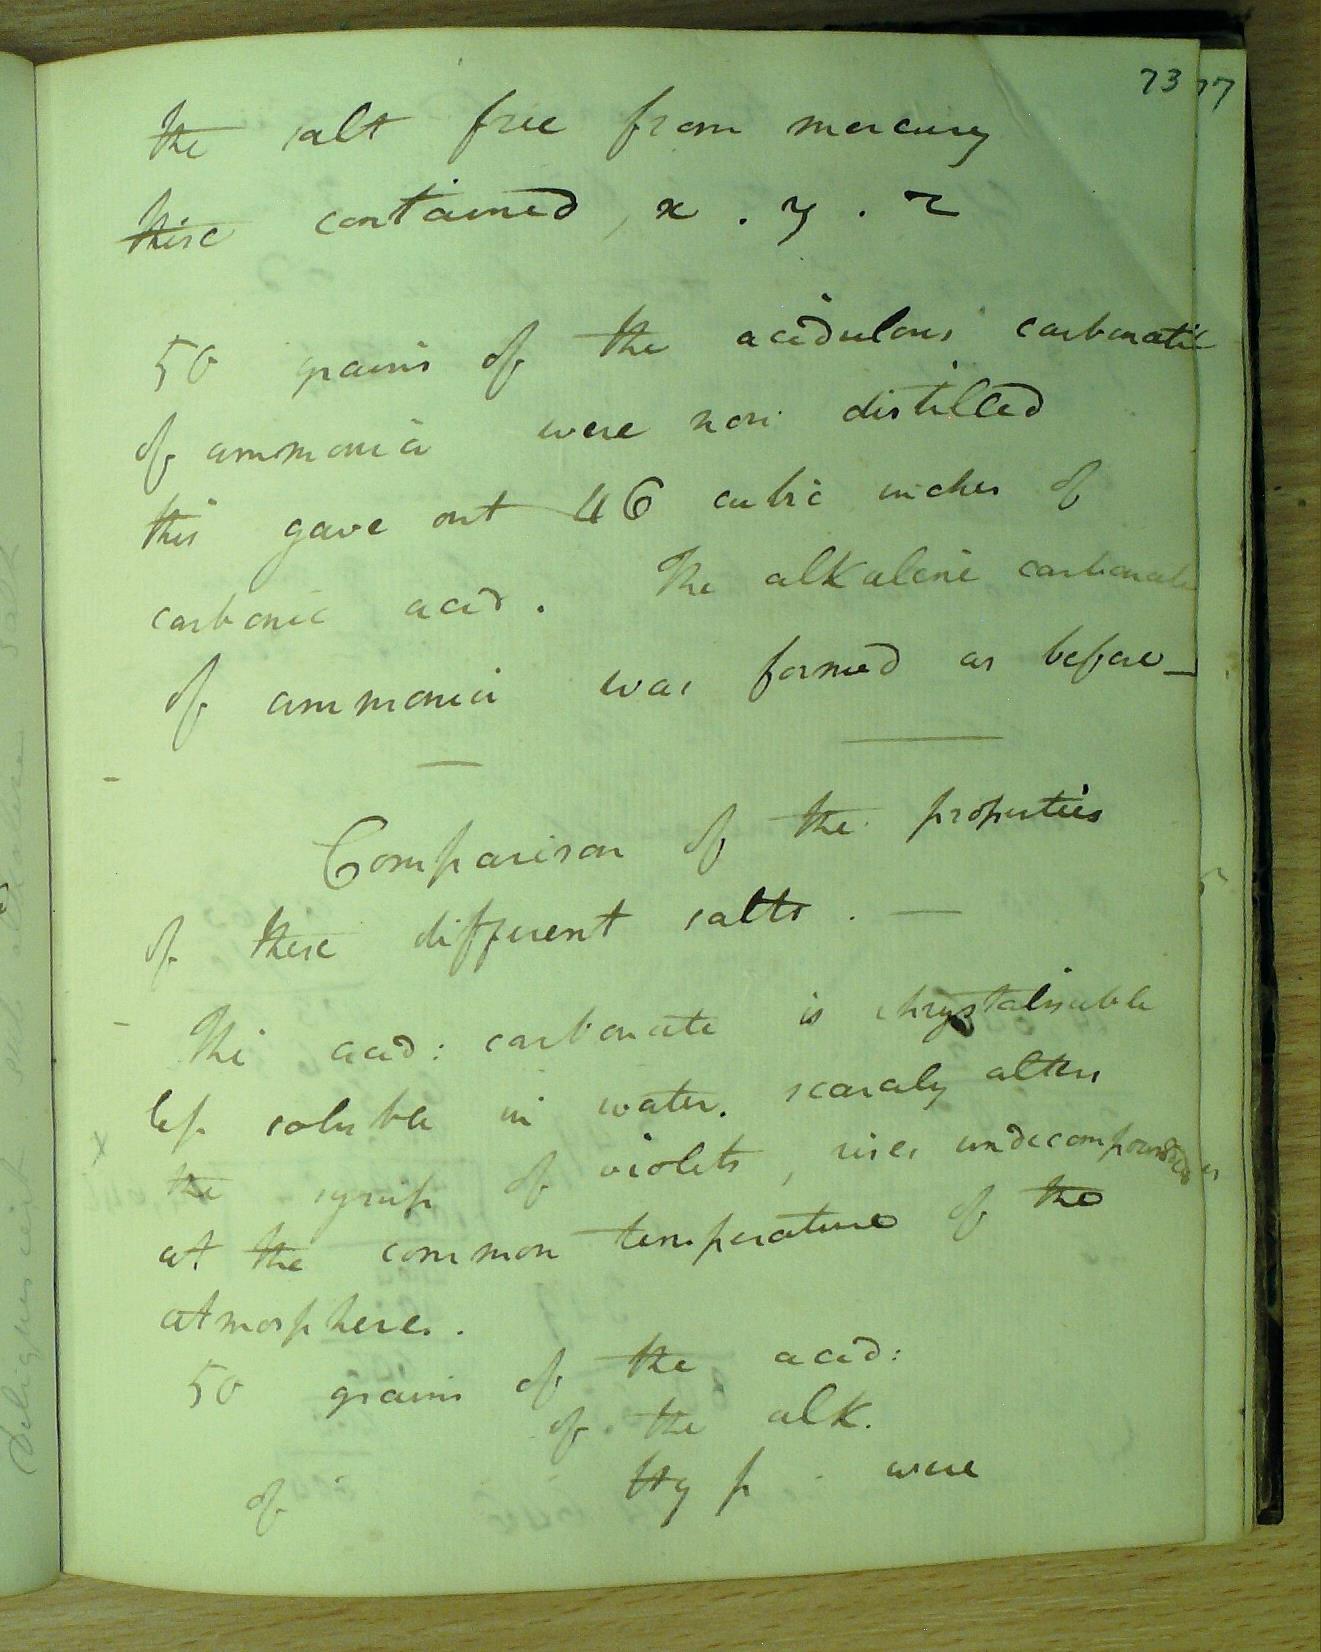 73 77
the salt free from mercury
these contained, x . y . z
50 grains of the acidulous carbonate
of ammonia were now distilled
this gave out 46 cubic inches of
carbonic acid. The alkaline carbonate
of ammonia was formed as before_
Comparison of the properties
of these different salts. —
The acid: carbonate is chrystalisable
less soluble in water. scarcely alters
the syrup of violets, rises undecompounded
at the common temperature of the
atmosphere.
50 grains of the acid:
of the alk.
of Hy p. were